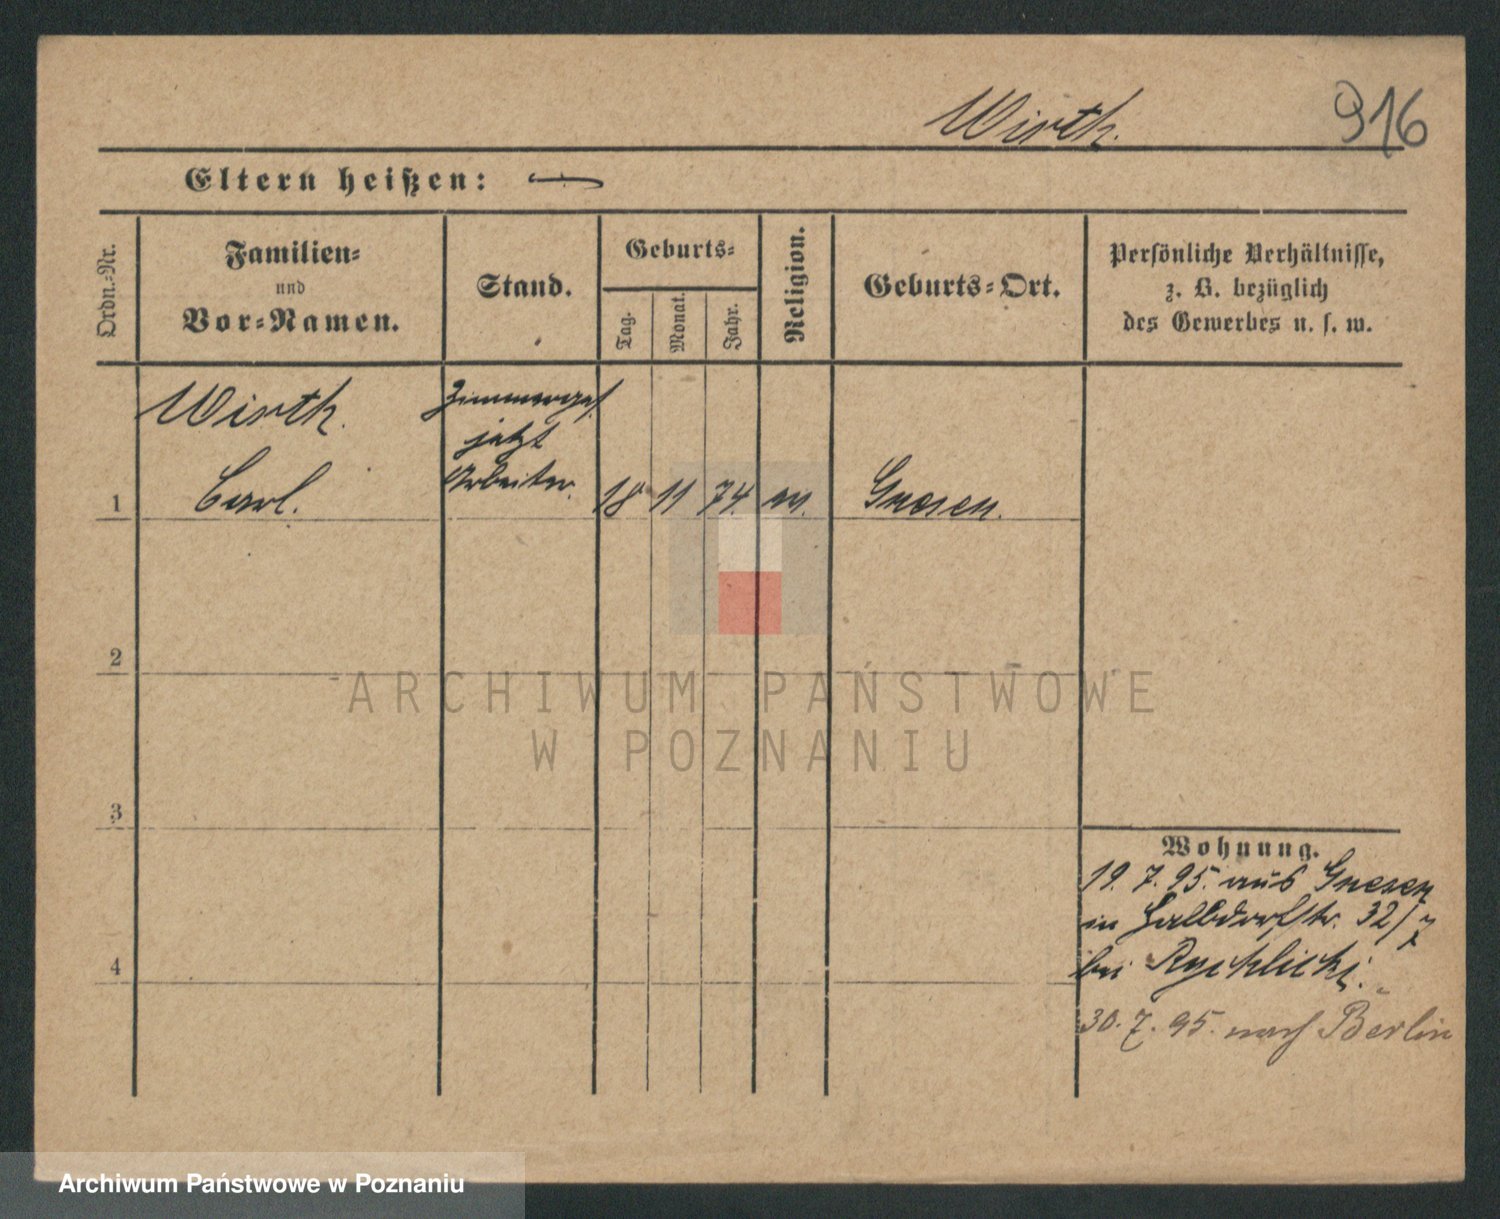 Wirth.
916
Eltern heißen: —
Ordn.-Nr.
Familien-
und
Vor-Namen.
Stand.
Geburts-
Tag.
Monat.
Jahr.
Religion.
Geburts-Ort.
Persönliche Verhältnisse,
z. B. bezüglich
des Gewerbes u. s. w.
Wirth.
Carl.
Zimmerges.
jetzt
Arbeiter.
1
18 11 74.
Gnesen.
2
ARCHIWUM PAŃSTWOWE
W POZNANIU
3
Wohnung.
19. 7. 95. aus Gnesen
in Halbdorfstr. 32/
bei
4
30. 7. 95. nach Berlin
Archiwum Państwowe w Poznaniu